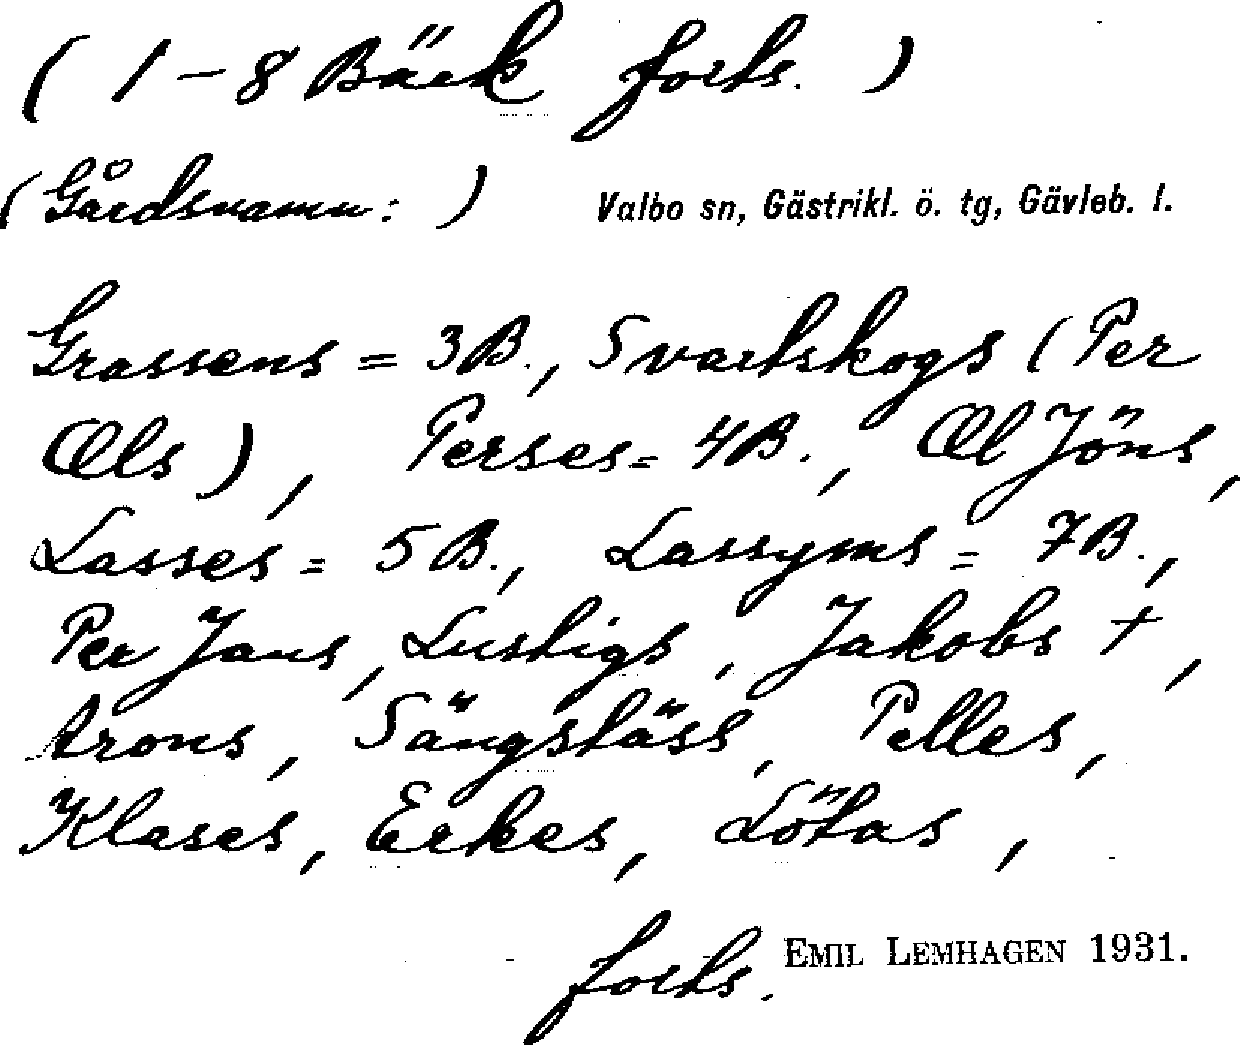 ( 1-8 Bäck forts. )
( Gårdsnamn: ) Valbo sn, Gästrikl. ö. tg, Gävleb. l.
Grassens = 3B., Svartskogs ( Per
Œls ) , Perses = 4B. , Œl Jöns,
Lasses = 5B., Lassyms = 7B.,
Per Jans, Lustigs, Jakobs + ,
Arons, Sängstäss, Pelles,
Klases, Erkes, Lötas ,
forts. EMIL LEMHAGEN 1931.